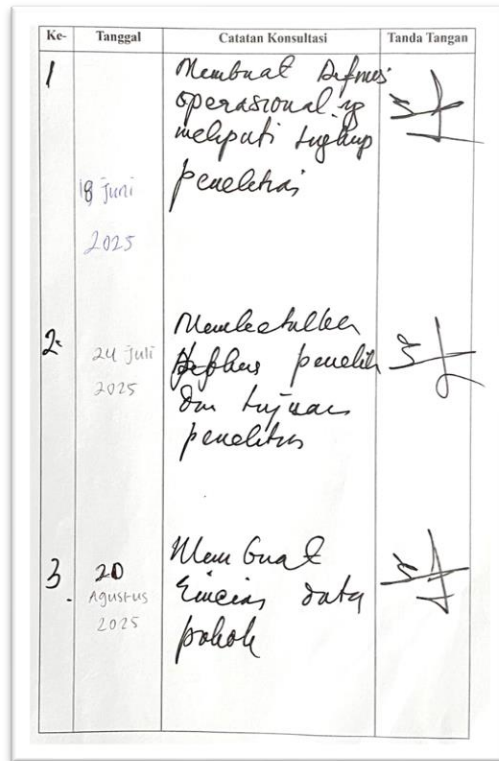 Ke- Tanggal Catatan Konsultasi Tanda Tangan
1
18 Juni
2025
Membuat Definisi
operasional yg
meliputi lingkup
penelitian
2.
24 Juli
2025
fokus penelitian
dan tujuan
penelitian
3.
20
Agustus
2025
Membuat
rincian data
pokok